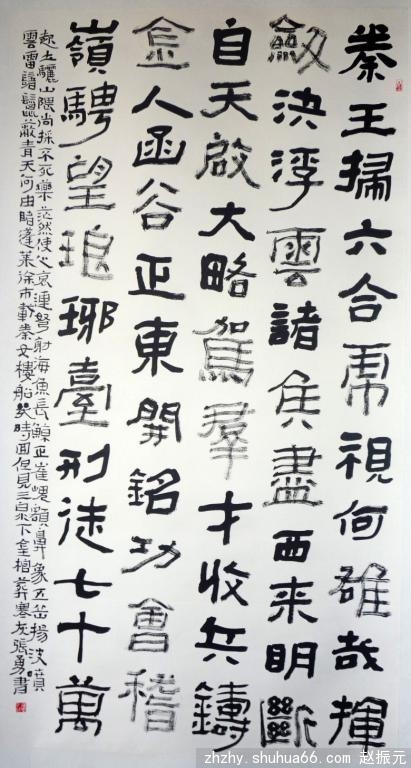 秦王掃六合虎視何雄哉揮
劍決浮雲諸侯盡西来明斷
自天啟大略駕羣才收兵鑄
金人函谷正東開銘功會稽
嶺騁望琅琊臺刑徒七十萬
起土驪山隈尚採不死藥茫然使心哀連弩射海魚長鯨正崔嵬額鼻象五岳揚波噴
雲雷鬐鬣蔽青天何由睹蓬萊徐市載秦女樓船幾時回但見三泉下金棺葬寒灰張勇書
zhzhy.shuhua66.com 赵振元